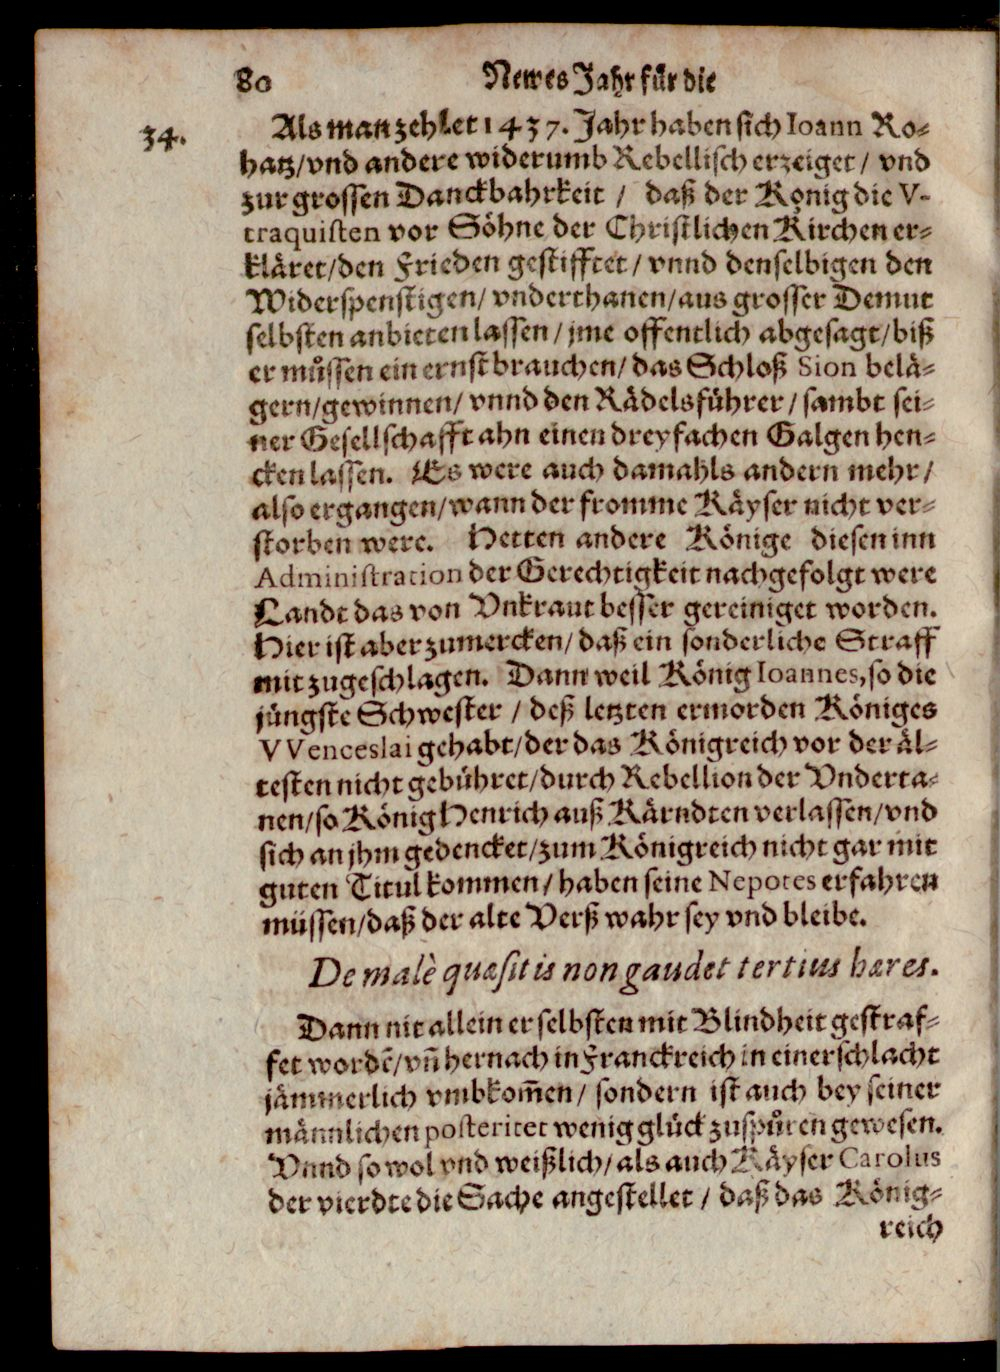 80 Newes Jahr für die
34. Als man zehlet 1437. Jahr haben sich Ioann Ro-
hatz/vnd andere widerumb Rebellisch erzeiget / vnd
zur grossen Danckbahrkeit / daß der König die V-
traquisten vor Söhne der Christlichen Kirchen er-
kläret/den Frieden gestifftet/ vnnd denselbigen den
Widerspenstigen/ vnderthanen/aus grosser Demut
selbsten anbieten lassen / jme offentlich abgesagt/biß
er můssen ein ernst brauchen/ das Schloß Sion belä-
gern/gewinnen/ vnnd den Rädelsführer / sambt sei-
ner Gesellschafft ahn einen dreyfachen Galgen hen-
cken lassen. Es were auch damahls andern mehr/
also ergangen/wann der fromme Käyser nicht ver-
storben were. Hetten andere Könige diesen inn
Administration der Gerechtigkeit nachgefolgt were
Landt das von Vnkraut besser gereiniget worden.
Hier ist aber zumercken/ daß ein sonderliche Straff
mit zugeschlagen. Dann weil König Ioannes, so die
jüngste Schwester / deß letzten ermorden Königes
VVenceslai gehabt/der das Königreich vor der äl-
testen nicht gebühret/durch Rebellion der Vnderta-
nen/so König Henrich auß Kärndten verlassen/vnd
sich an jhm gedencket/zum Königreich nicht gar mit
guten Titul kommen/ haben seine Nepotes erfahren
müssen/daß der alte Verß wahr sey vnd bleibe.
De malè quæsitis non gaudet tertius hæres.
Dann nit allein er selbsten mit Blindheit gestraf-
fet wordē/vñ hernach in Franckreich in einer schlacht
jämmerlich vmbkom̄en/ sondern ist auch bey seiner
männlichen posteritet wenig glück zuspůren gewesen.
Vnnd so wol vnd weißlich/ als auch Käyser Carolus
der vierdte die Sache angestellet / daß das König-
reich